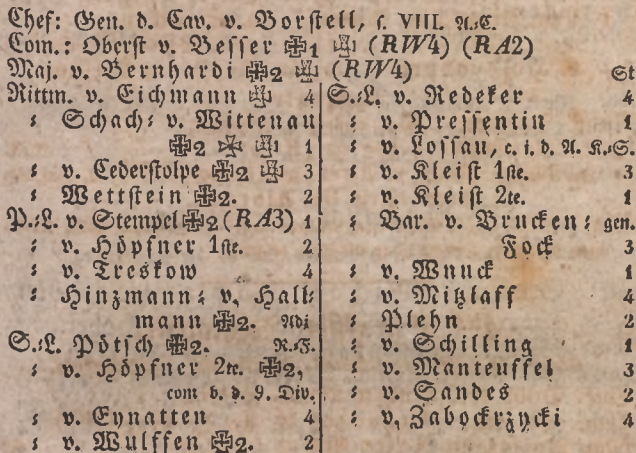 Chef: Gen. d. Cav. v. Borstell, s. VIII. A.C.
Com.: Oberst v. Besser ✠1 ✠ (RW4) (RA2)
Maj. v. Bernhardi ✠2 ✠ (RW4)
Rittm. v. Eichmann ✠ 4
: Schach: v. Wittenau
✠2 ✠ ✠ 1
: v. Cederstolpe ✠2 ✠ 3
: Wettstein ✠2. 2
P.:L. v. Stempel ✠2 (RA3) 1
: v. Höpfner 1ste. 2
: v. Treskow 4
: Hinzmann: v. Hall:
mann ✠2. Adj
S.:L. Pötsch ✠2. R.:F.
: v. Höpfner 2te. ✠2,
com b. d. 9. Div.
: v. Eynatten 4
: v. Wulffen ✠2. 2
St
S.:L. v. Redeker 4
: v. Pressentin 1
: v. Lossau, c. i. d. A. K.:S.
: v. Kleist 1ste. 3
: v. Kleist 2te. 1
: Bar. v. Brucken: gen.
Fock 3
: v. Wnuck 1
: v. Mitzlaff 4
: Plehn 2
: v. Schilling 1
: v. Manteuffel 3
: v. Sandes 2
: v. Zabockrzycki 4